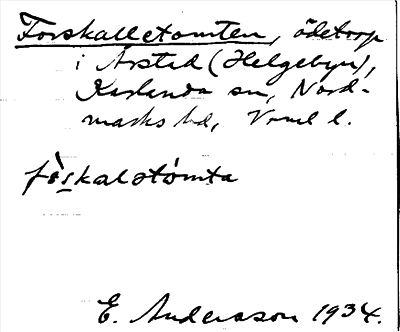 Forskalletomten, ödetorp
i Årstad (Helgebyn),
Karlanda sn, Nord-
marks hd, Vrml l.
fò̀skalstómta
E. Andersson 1934.